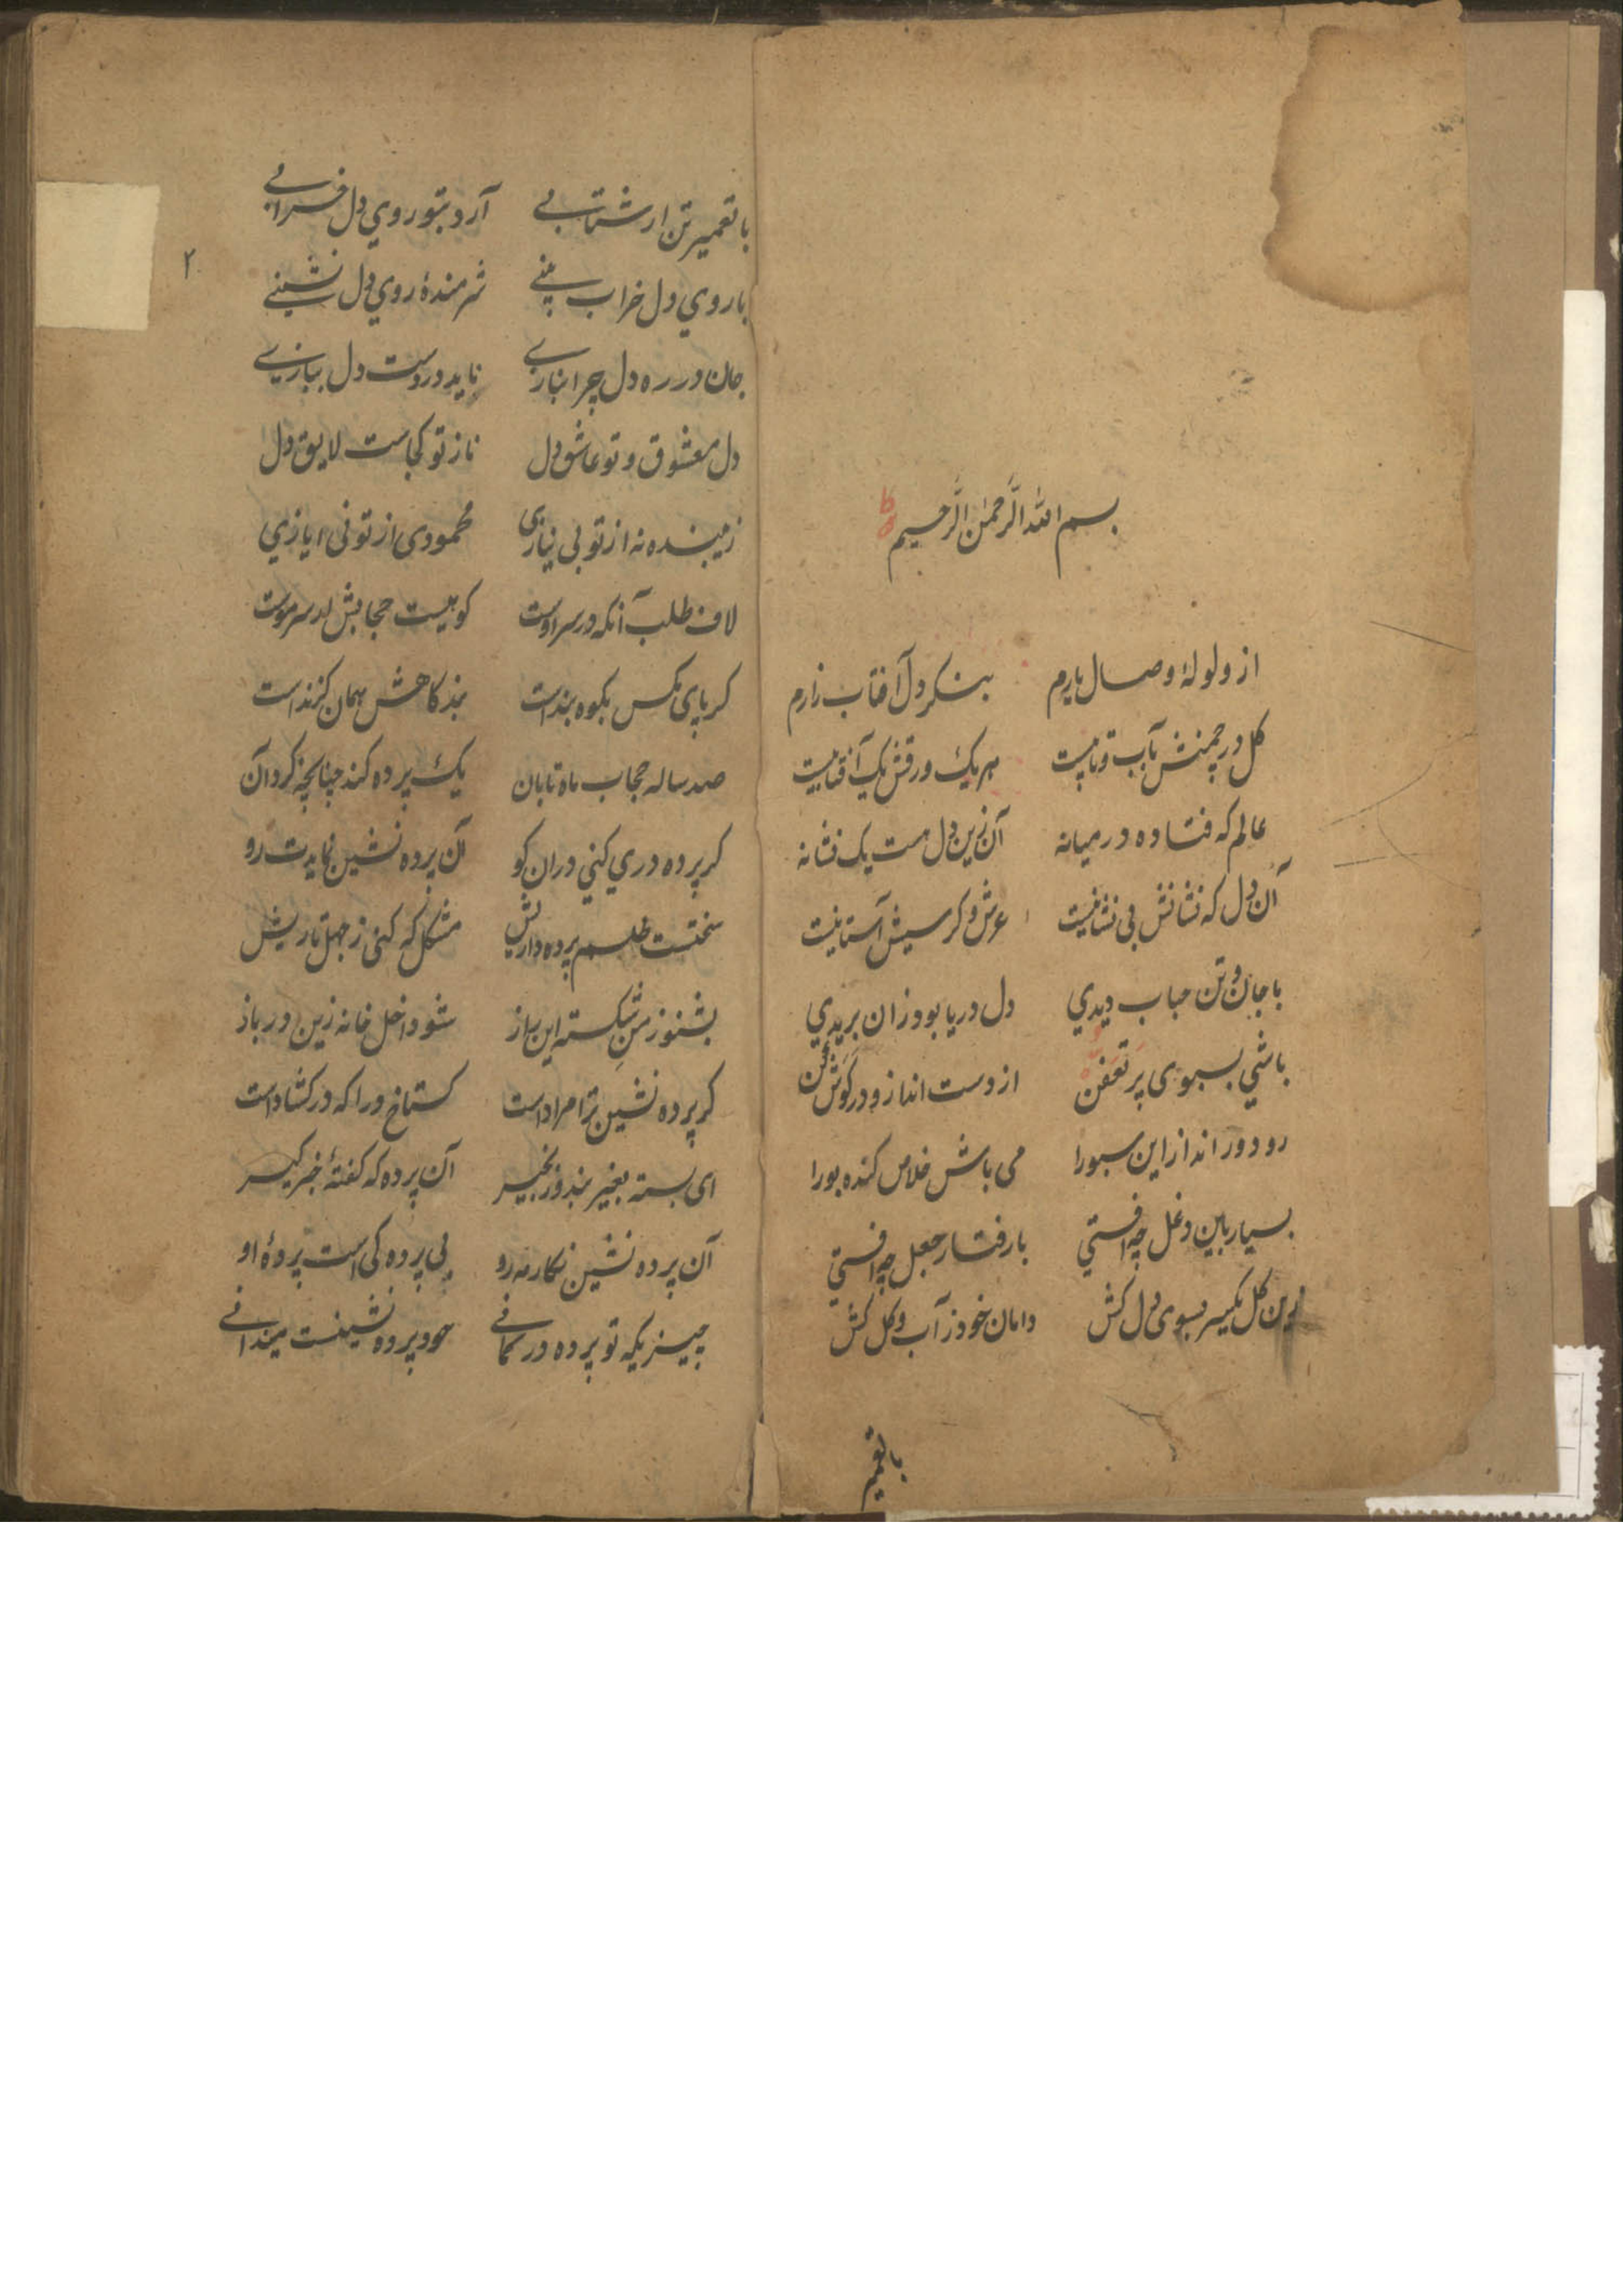 بسم الله الرَّحمٰن الرَّحيم
از ولولهٔ وصـال يارم بنـكر دل آفتاب زارم
كل در چمنش بآب و تابيست هر يك ورقش يك آفتابيست
عالم كه فتاده در ميانه آن زين دل هست يك نشانه
آن دل كه نشانش بی نشانيست عرش و كرسيش آستانيست
با جان و تن حباب ديدي دل دريا بود زان بريدي
باشي بسبوی پر تعفن از دست انداز و در كوش كن
رو دور انداز اين سبورا می باش خلاص كنده بورا
بسيار باين دغل چه افتي با رفتار جعل چه افتي
اين كل يكسر بسوی دل كش دامان خود ز آب و كل كش
با تعمير
۲
با تعمير تن ار شتابے آرد بتو روي دل خرابے
با روي دل خراب بينے شرمندهٔ روي دل نشينے
جان در ره دل چرا نبازے نايد در دست دل ببازيے
دل معشوق و تو عاشق دل ناز تو كجاست لايق دل
زيبنده نه از تو بی نيازی محمودی از تو نی ايازي
لاف طلب آنكه در سر اوست كوهيست حجابش ار سر موست
كر پاى مكس بكوه بند است بند كاهش همان كزند است
صد ساله حجاب ماه تابان يك پرده كند چنانچه كرد آن
كر پرده دري كني دران كو آن پرده نشين نمايدت رو
سختست طلسم پرده داريش مشكل كه كنی ز جهل تاريش
بشنو ز من شكسته اين راز شو داخل خانه زين در باز
كر پرده نشين ترا مراد است كستاخ درا كه در كشاد است
ای بسته بغير بند و زنجير آن پرده كه كفتهٔ خبر كير
آن پرده نشين نكار مه رو بی پرده كی است پردهٔ او
چيـزيكه تو پرده در كمانے خود پرده نشينست ميدانے